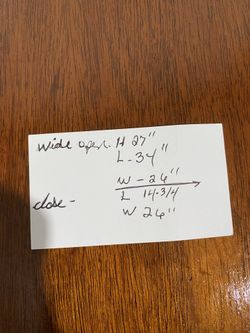 wide open. H 27"
L - 34"
W - 26"
close - L 14-3/4
W 26"